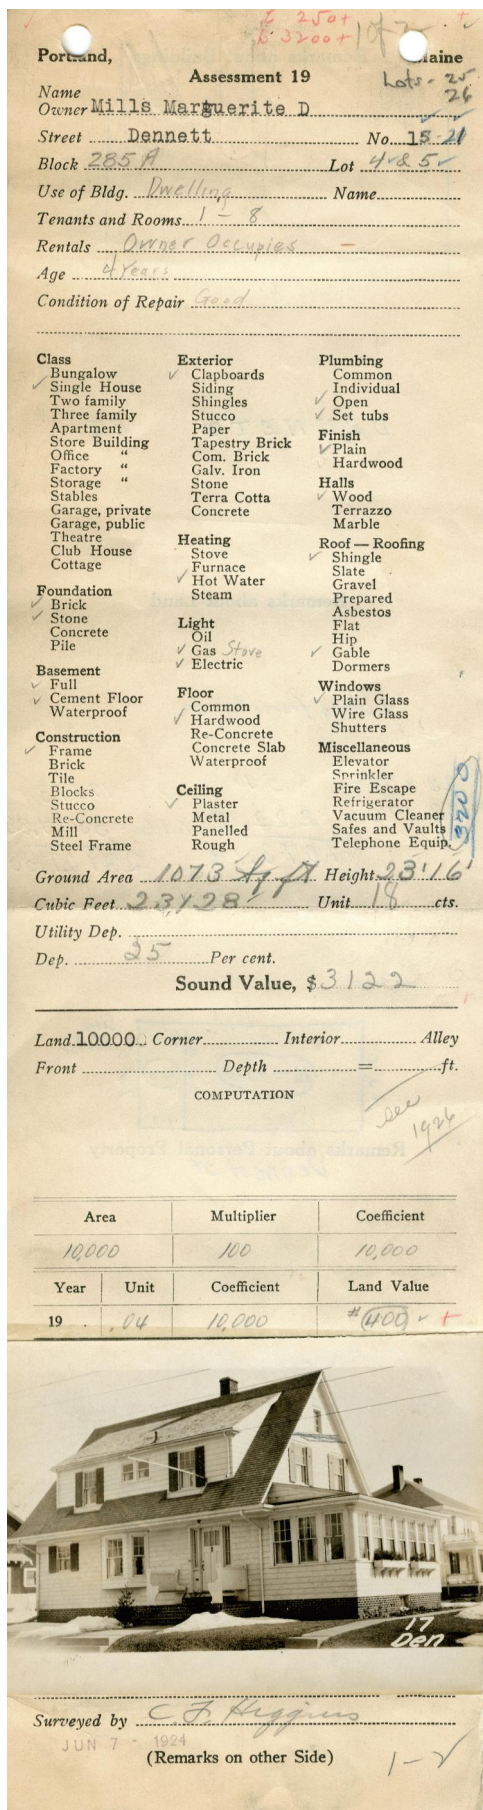 L 250+
B 3200+ 1 of 2 +
Portland, Maine
Assessment 19
Lots - 25
26
Name
Owner Mills Marguerite D
Street Dennett No. 15-21
Block 285 A Lot 4 & 5
Use of Bldg. Dwelling Name
Tenants and Rooms 1 - 8
Rentals Owner Occupies -
Age 4 Years
Condition of Repair Good
Class
Bungalow
✓ Single House
Two family
Three family
Apartment
Store Building
Office "
Factory "
Storage "
Stables
Garage, private
Garage, public
Theatre
Club House
Cottage
Foundation
✓ Brick
✓ Stone
Concrete
Pile
Basement
✓ Full
✓ Cement Floor
Waterproof
Construction
✓ Frame
Brick
Tile
Blocks
Stucco
Re-Concrete
Mill
Steel Frame
Exterior
✓ Clapboards
Siding
Shingles
Stucco
Paper
Tapestry Brick
Com. Brick
Galv. Iron
Stone
Terra Cotta
Concrete
Heating
Stove
Furnace
✓ Hot Water
Steam
Light
Oil
✓ Gas Stove
✓ Electric
Floor
Common
✓ Hardwood
Re-Concrete
Concrete Slab
Waterproof
Ceiling
✓ Plaster
Metal
Panelled
Rough
Plumbing
Common
Individual
✓ Open
✓ Set tubs
Finish
✓ Plain
Hardwood
Halls
✓ Wood
Terrazzo
Marble
Roof — Roofing
✓ Shingle
Slate
Gravel
Prepared
Asbestos
Flat
Hip
✓ Gable
Dormers
Windows
✓ Plain Glass
Wire Glass
Shutters
Miscellaneous
Elevator
Sprinkler
Fire Escape
Refrigerator
Vacuum Cleaner
Safes and Vaults
Telephone Equip.
3200
Ground Area 1073 sq ft Height 23'16'
Cubic Feet 23,128' Unit 18 cts.
Utility Dep.
Dep. 25 Per cent.
Sound Value, $3122
Land 10000 Corner Interior Alley
Front Depth = ft.
COMPUTATION
see
1926
Area Multiplier Coefficient
10,000 100 10,000
Year Unit Coefficient Land Value
19 .04 10,000 $400 +
17
Den
Surveyed by C. F. Higgins
JUN 7 - 1924
(Remarks on other Side)
1-2